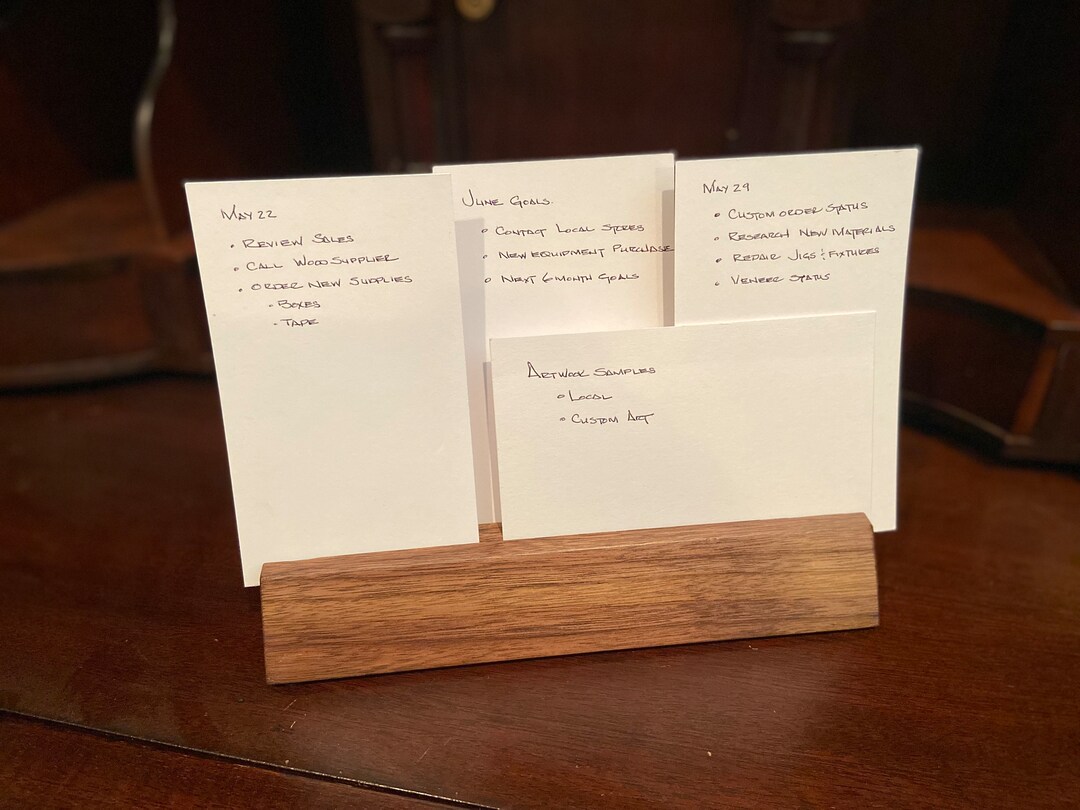 MAY 22
• REVIEW SALES
• CALL WOOD SUPPLIER
• ORDER NEW SUPPLIES
- BOXES
- TAPE
JUNE GOALS
• CONTACT LOCAL STORES
• NEW EQUIPMENT PURCHASE
• NEXT 6 MONTH GOALS
MAY 29
• CUSTOM ORDER STATUS
• RESEARCH NEW MATERIALS
• REPAIR JIGS & FIXTURES
• VENEER STATUS
ARTWORK SAMPLES
• LOCAL
• CUSTOM ART